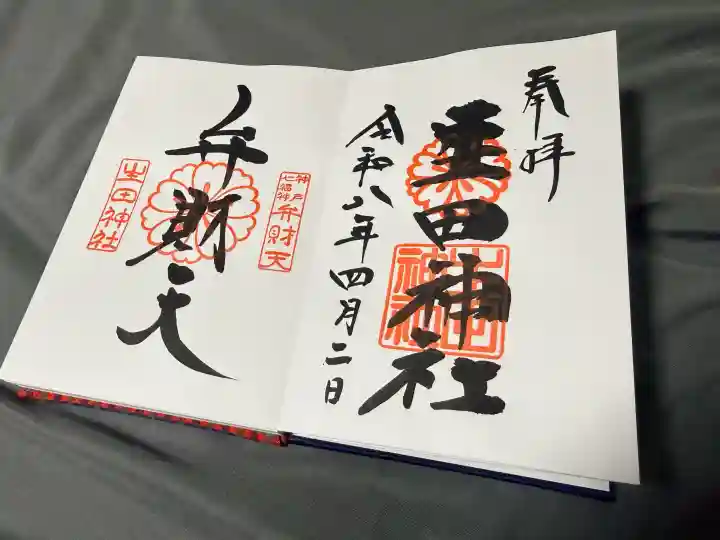 奉拝
生田神社
生田神社
令和八年四月二日
神戸
七福神
弁財天
弁財天
生田神社